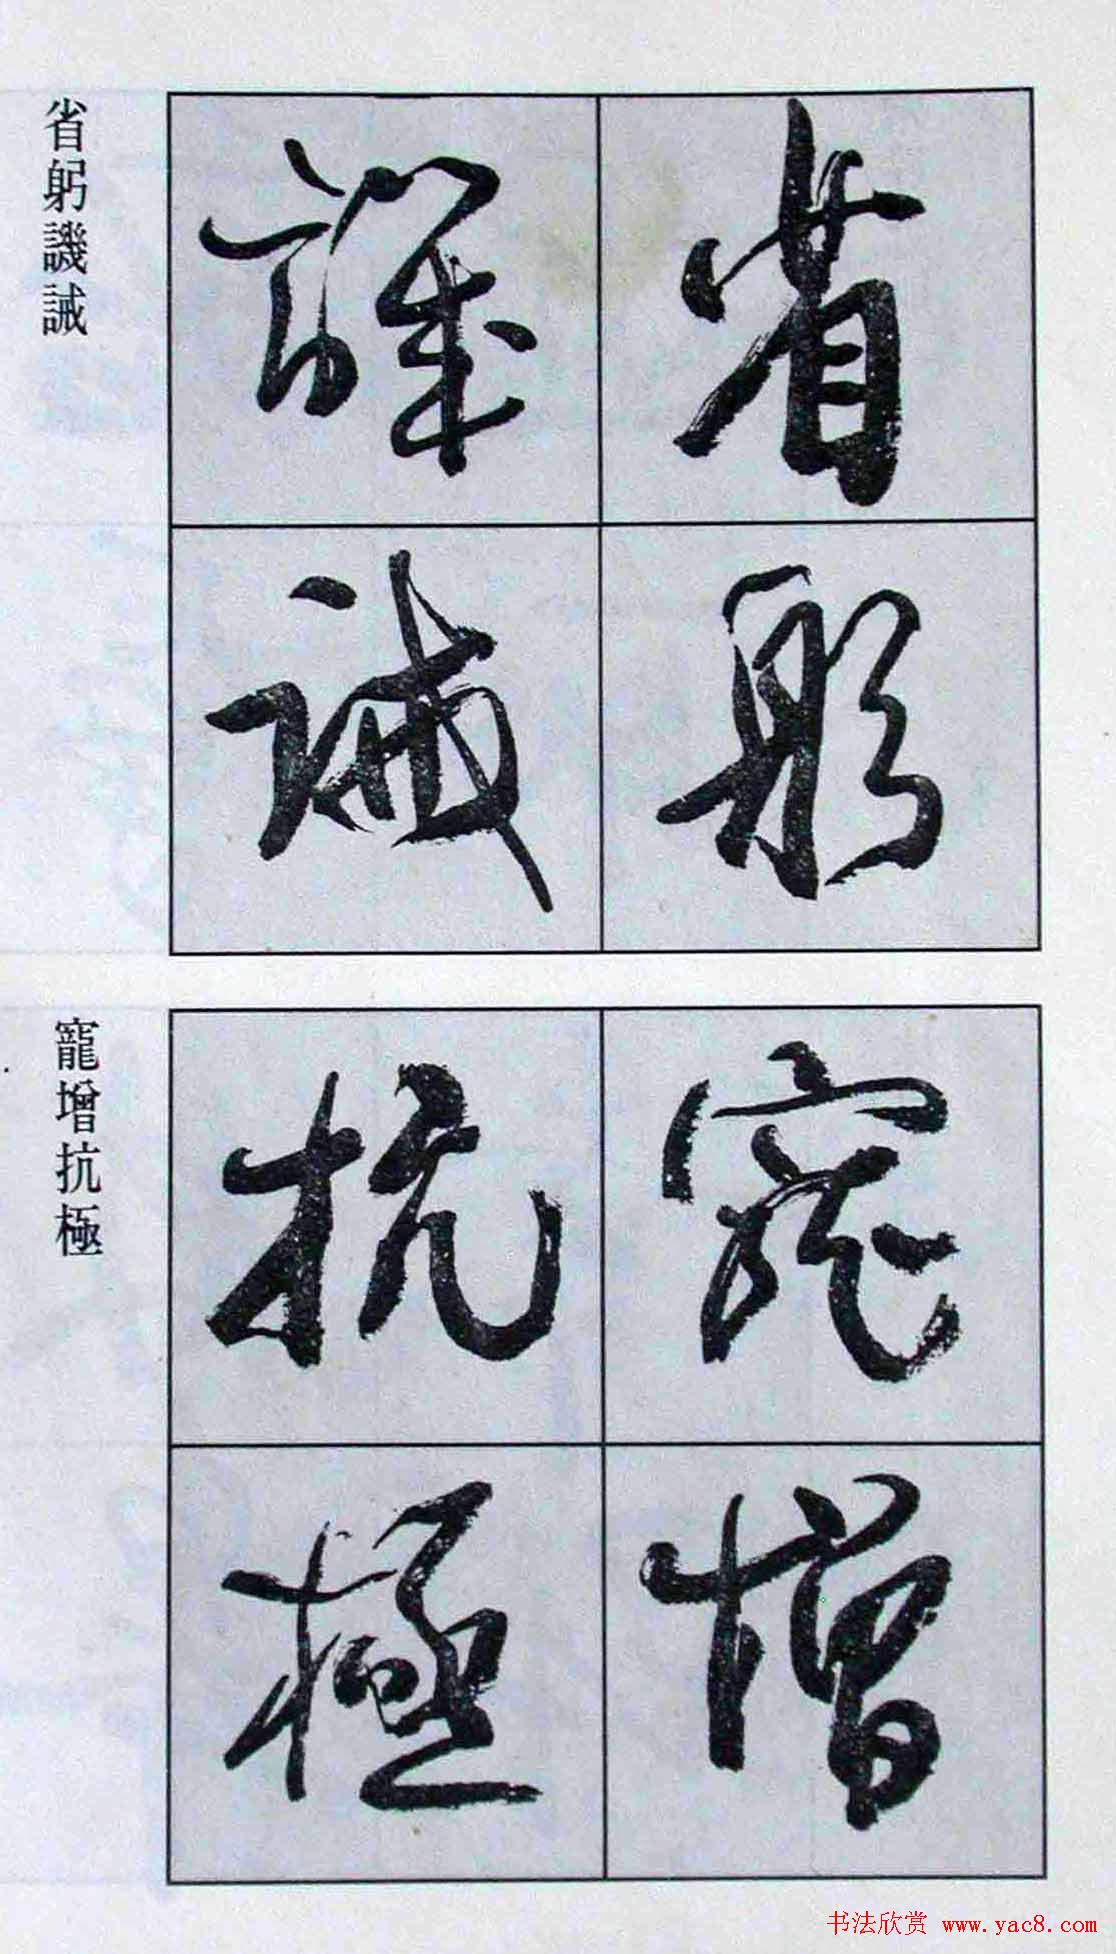 省躬
譏誡
省躬譏誡
寵增
抗極
寵增抗極
书法欣赏 www.yac8.com